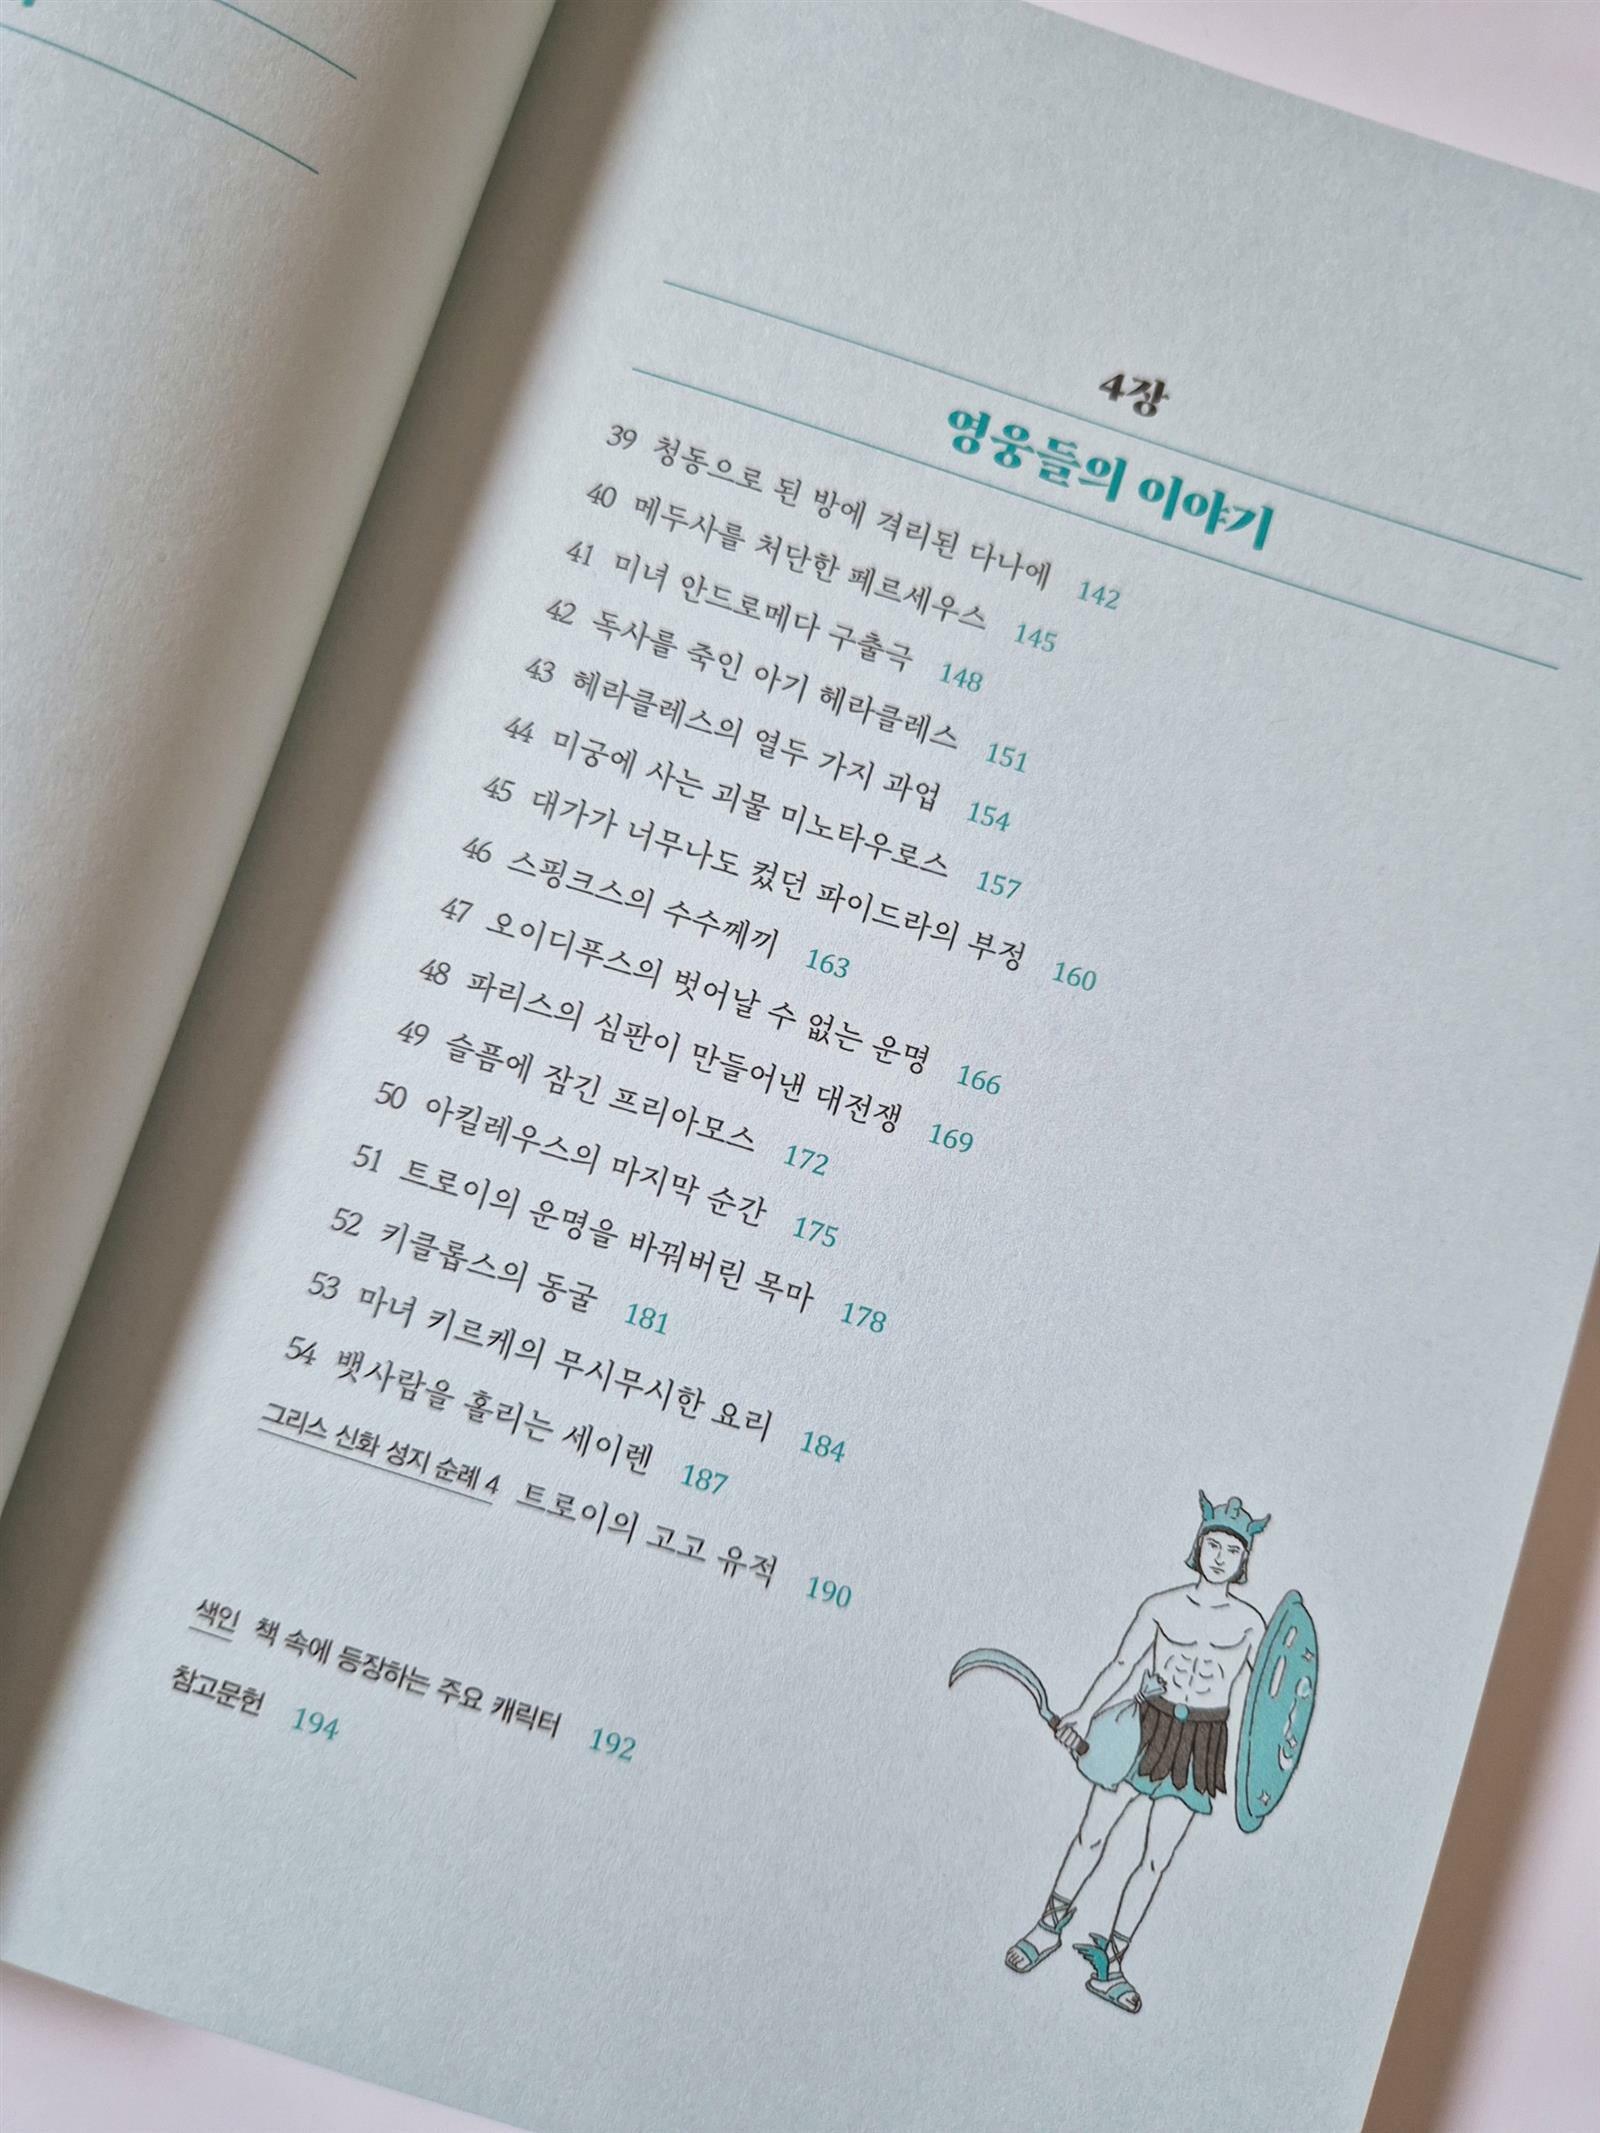 4장
영웅들의 이야기
39 청동으로 된 방에 격리된 다나에 142
40 메두사를 처단한 페르세우스 145
41 미녀 안드로메다 구출극 148
42 독사를 죽인 아기 헤라클레스 151
43 헤라클레스의 열두 가지 과업 154
44 미궁에 사는 괴물 미노타우로스 157
45 대가가 너무나도 컸던 파이드라의 부정 160
46 스핑크스의 수수께끼 163
47 오이디푸스의 벗어날 수 없는 운명 166
48 파리스의 심판이 만들어낸 대전쟁 169
49 슬픔에 잠긴 프리아모스 172
50 아킬레우스의 마지막 순간 175
51 트로이의 운명을 바꿔버린 목마 178
52 키클롭스의 동굴 181
53 마녀 키르케의 무시무시한 요리 184
54 뱃사람을 홀리는 세이렌 187
그리스 신화 성지 순례 4 트로이의 고고 유적 190
색인 책 속에 등장하는 주요 캐릭터 192
참고문헌 194